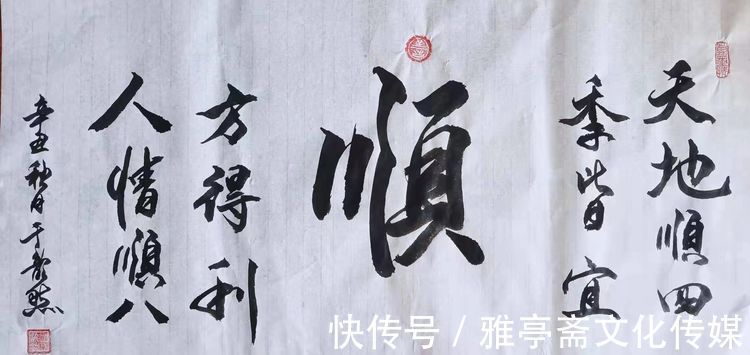 天地順四
季皆宜
順
人情順八
方得利
辛丑秋月于
快传号 / 雅亭斋文化传媒